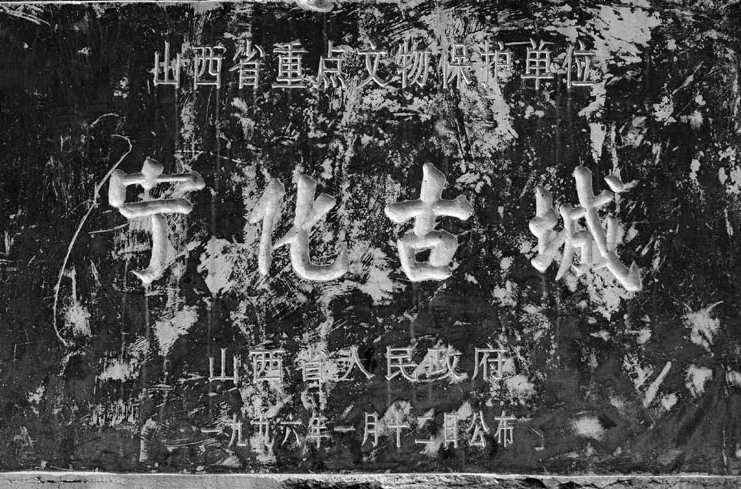 山西省重点文物保护单位
宁化古城
山西省人民政府
一九九六年一月十二日公布